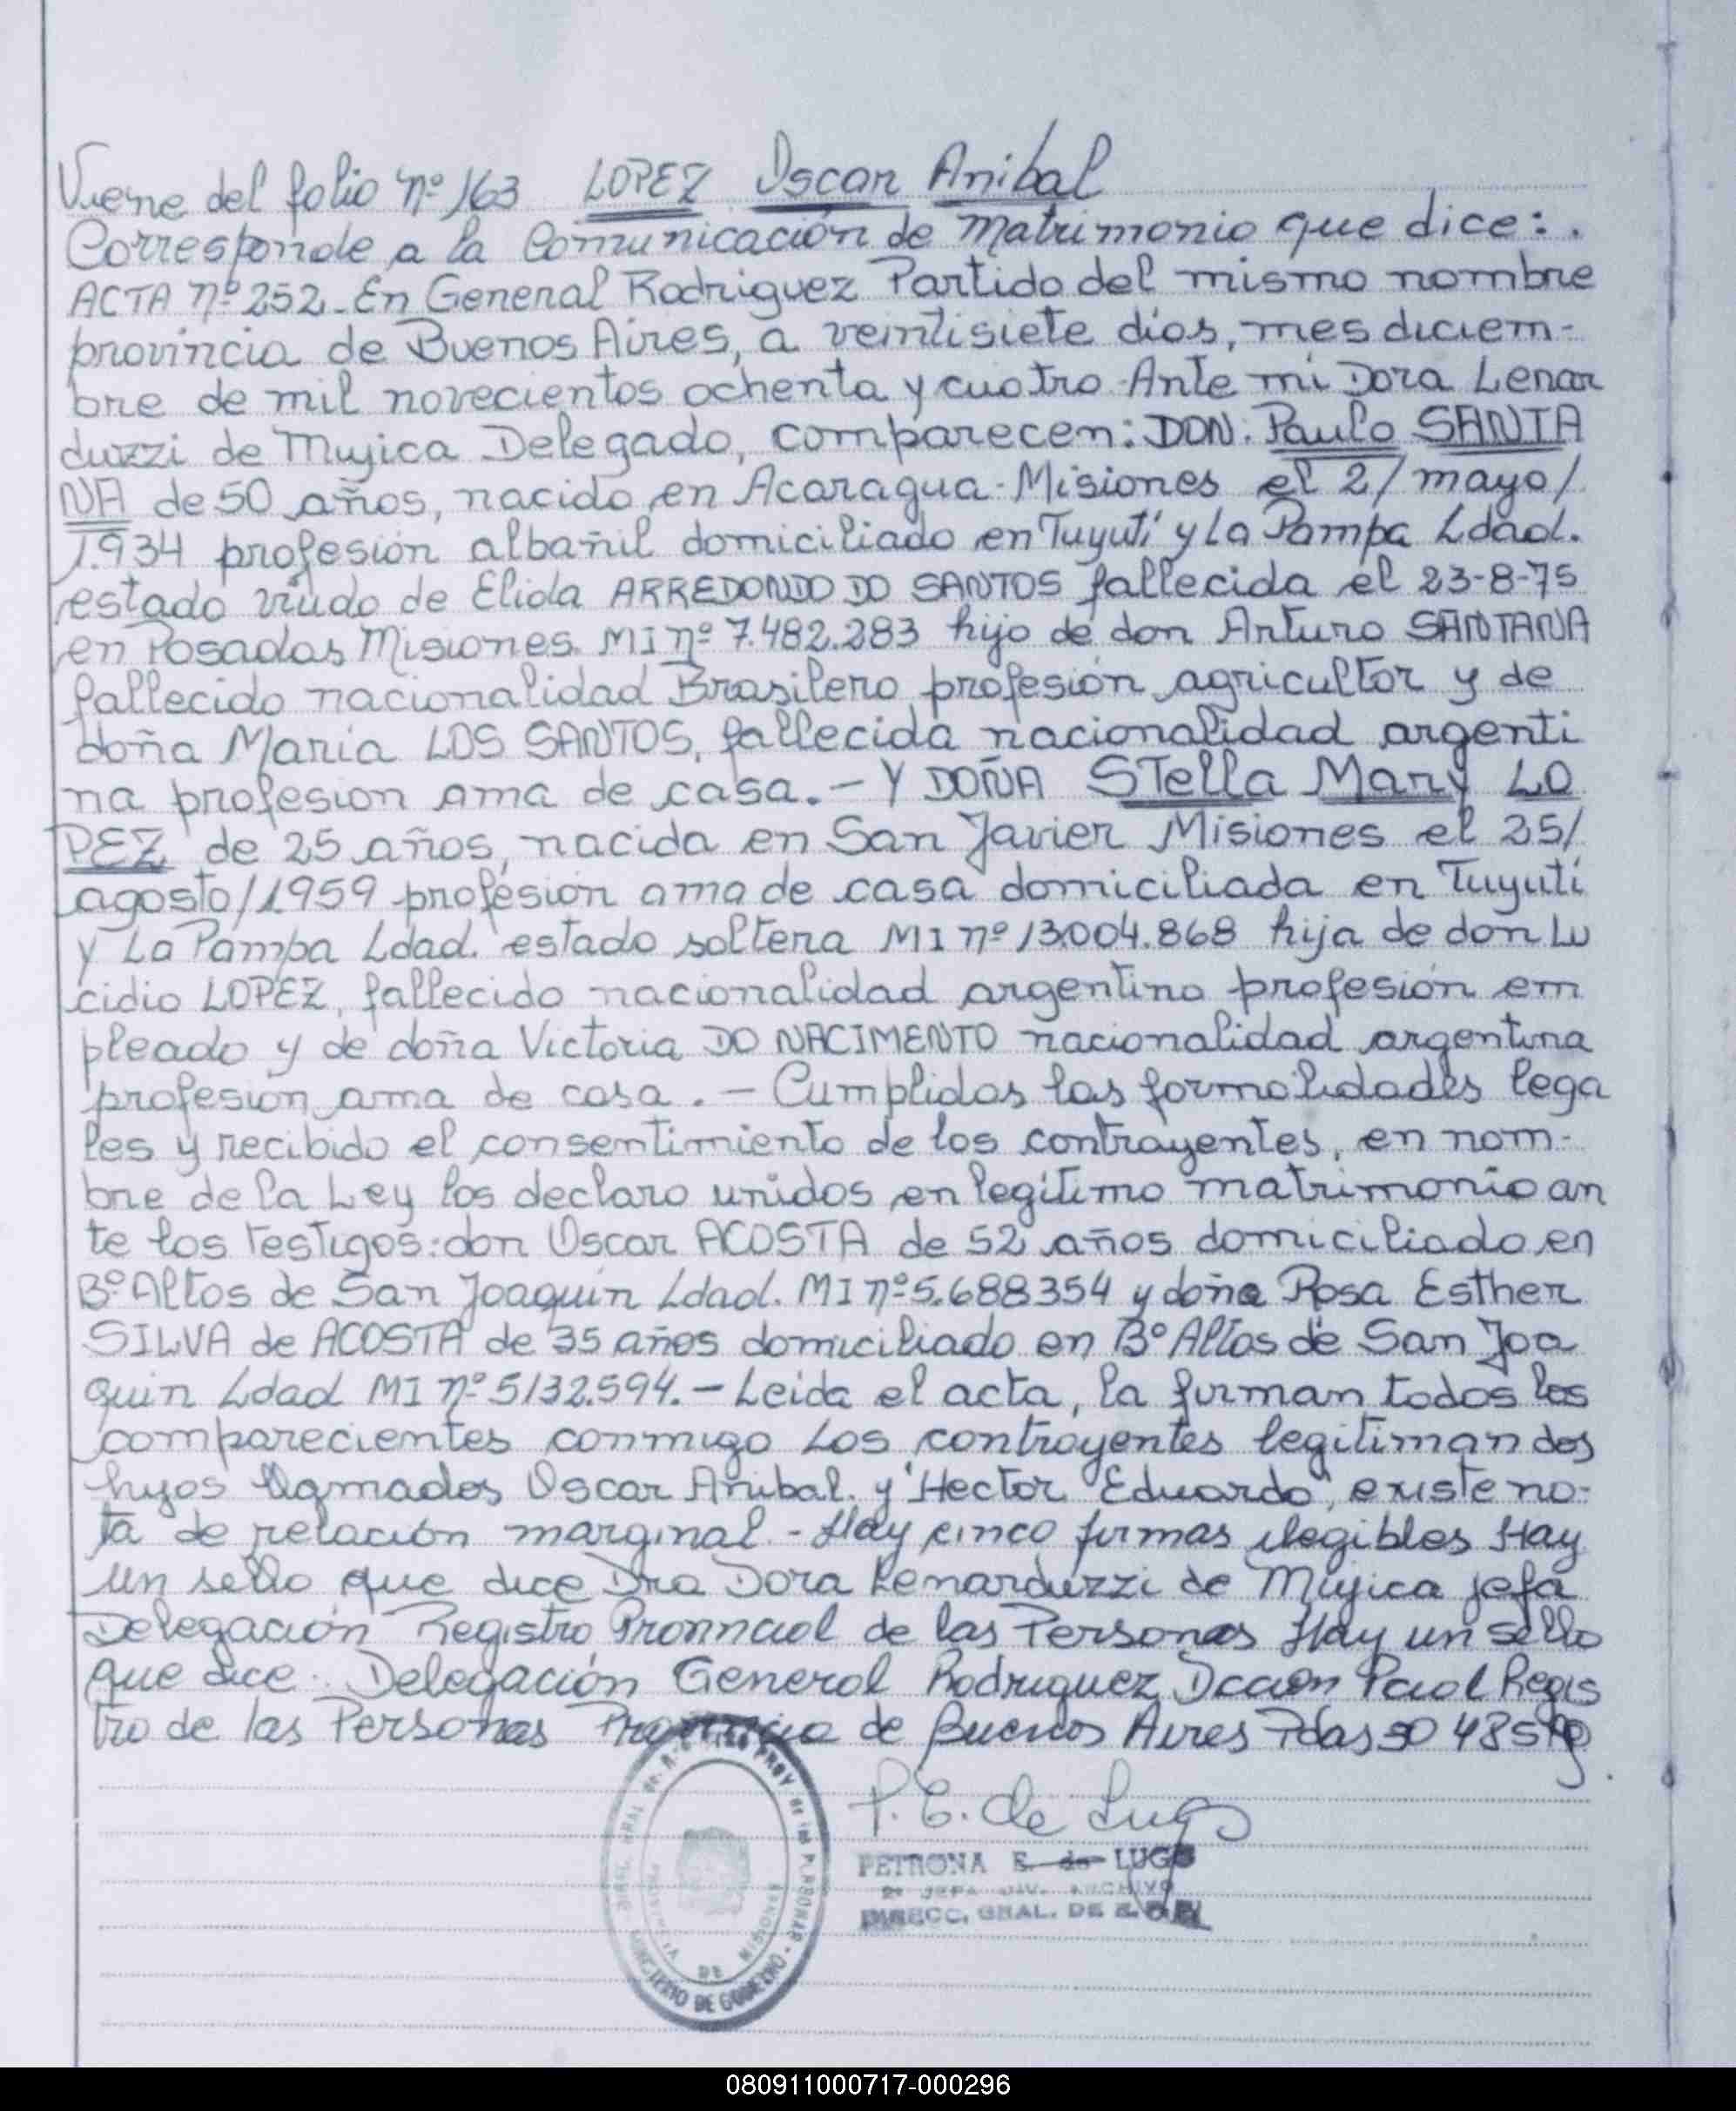 Viene del folio nº 163 LOPEZ Oscar Anibal
Corresponde a la Comunicación de Matrimonio que dice:.
ACTA nº 252. En General Rodriguez Partido del mismo nombre
provincia de Buenos Aires, a veintisiete dias, mes diciem-
bre de mil novecientos ochenta y cuatro. Ante mi Dora Lenar
duzzi de Mujica Delegado, comparecen: DON. Paulo SANTA
NA de 50 años, nacido en Acaragua-Misiones el 2/mayo/
1.934 profesión albañil domiciliado en Tuyutí y La Pampa Ldad.
estado viudo de Elida ARREDONDO DO SANTOS fallecida el 23-8-75
en Posadas Misiones. MI nº 7.482.283 hijo de don Arturo SANTANA
fallecido nacionalidad Brasilero profesión agricultor y de
doña Maria LOS SANTOS, fallecida nacionalidad argenti
na profesion ama de casa.- Y DOÑA Stella Mary LO
PEZ de 25 años, nacida en San Javier Misiones el 25/
agosto/1959 profesión ama de casa domiciliada en Tuyutí
y La Pampa Ldad. estado soltera MI nº 13.004.868 hija de don Lu
cidio LOPEZ, fallecido nacionalidad argentino profesión em
pleado y de doña Victoria DO NACIMENTO nacionalidad argentina
profesión ama de casa. - Cumplidas las formalidades lega
les y recibido el consentimiento de los contrayentes, en nom-
bre de la Ley los declaro unidos en legitimo matrimonio an
te los testigos: don Oscar ACOSTA de 52 años domiciliado en
Bº Altos de San Joaquin Ldad. MI nº 5.688354 y doña Rosa Esther
SILVA de ACOSTA de 35 años domiciliado en Bº Altos de San Joa
quin Ldad MI nº 5132.594.- Leida el acta, la firman todos los
comparecientes conmigo Los contrayentes legitiman dos
hijos llamados Oscar Anibal. y "Hector Eduardo", existe no-
ta de relación marginal.- Hay cinco firmas ilegibles Hay
un sello que dice Dra Dora Lenarduzzi de Mujica jefa
Delegación Registro Provincial de las Personas Hay un sello
que dice. Delegación General Rodriguez Dccion Pcial Regis
tro de las Personas Provincia de Buenos Aires Pdas
P. E. de Lugo
PETRONA E. de LUGO
2ª JEFA DIV. ARCHIVO
DIRECC. GRAL. DE
MINISTERIO DE GOBIERNO
DE MISIONES
080911000717-000296